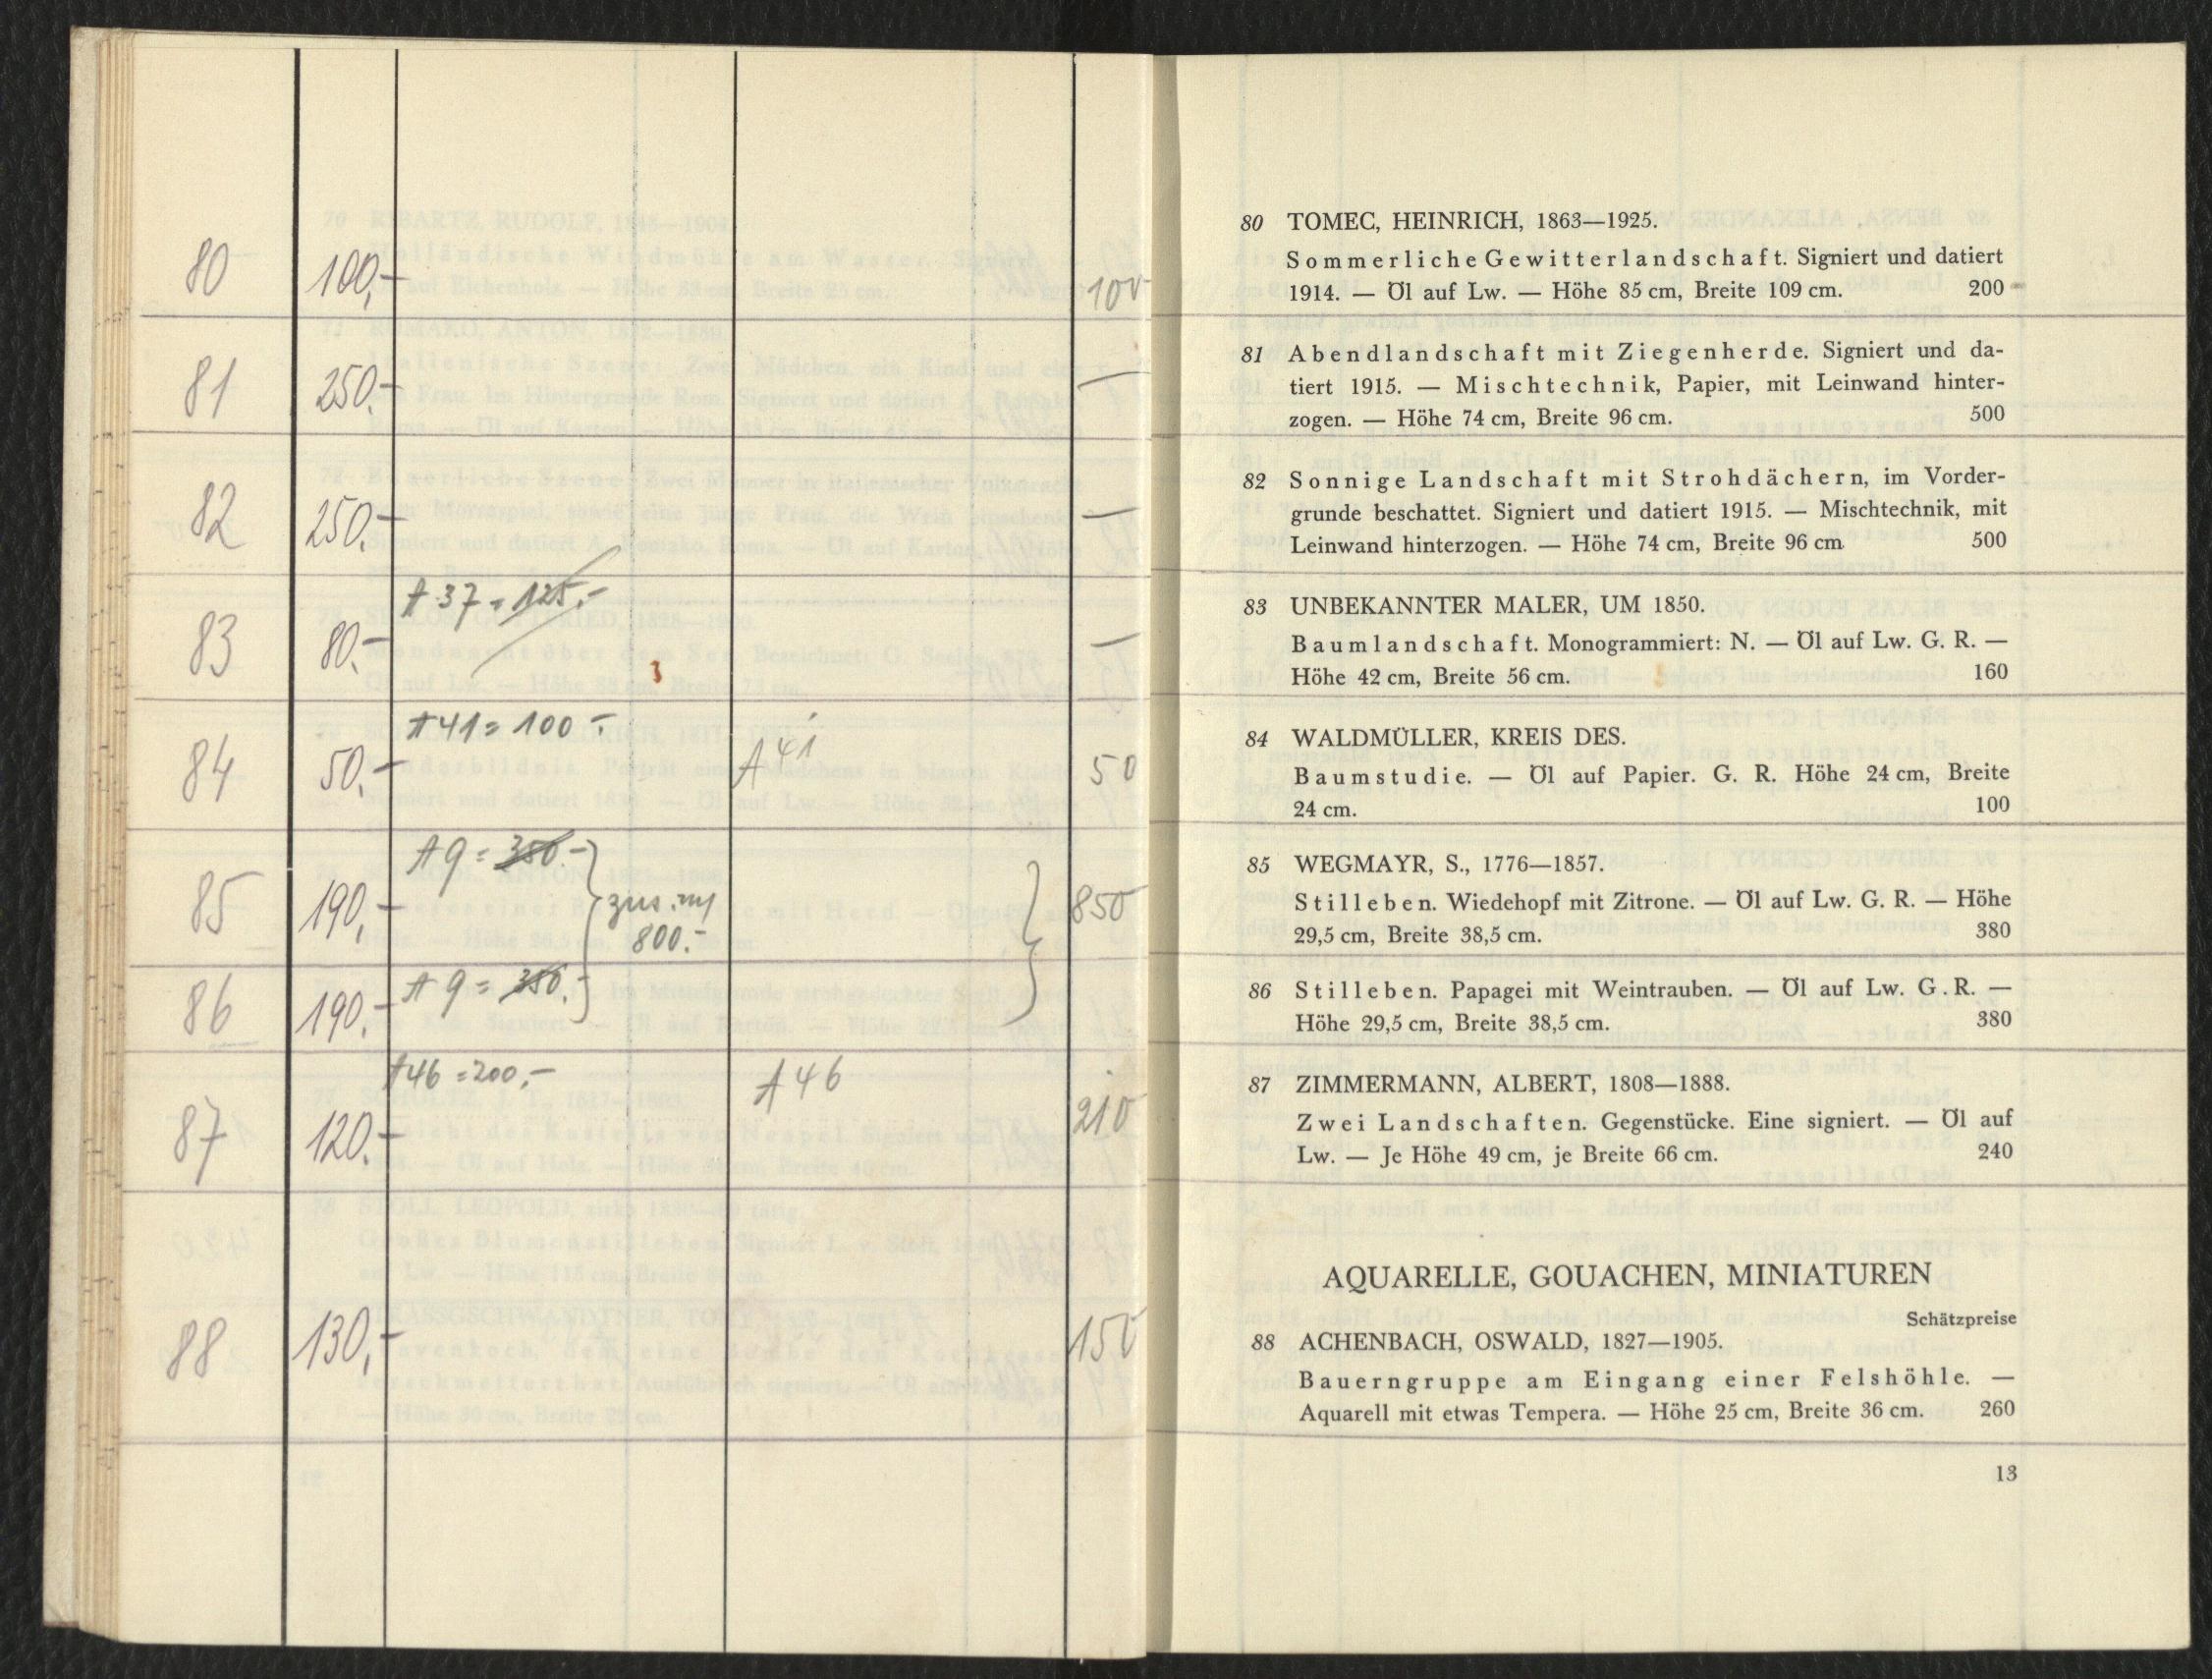 80 100,- 100
81 250.- —
82 250.- —
A 37 = 125.-
83 80.- —
A 41 = 100.-
84 50.- A 41 50
A 9 = 350.-
85 190,- zus. 850
800.-
A 9 = 350.-
86 190.-
A 46 = 200,- A 46
87 120.- 210
88 130,- 150
80 TOMEC, HEINRICH, 1863—1925.
Sommerliche Gewitterlandschaft. Signiert und datiert
1914. — Öl auf Lw. — Höhe 85 cm, Breite 109 cm. 200
81 Abendlandschaft mit Ziegenherde. Signiert und da-
tiert 1915. — Mischtechnik, Papier, mit Leinwand hinter-
zogen. — Höhe 74 cm, Breite 96 cm. 500
82 Sonnige Landschaft mit Strohdächern, im Vorder-
grunde beschattet. Signiert und datiert 1915. — Mischtechnik, mit
Leinwand hinterzogen. — Höhe 74 cm, Breite 96 cm 500
83 UNBEKANNTER MALER, UM 1850.
Baumlandschaft. Monogrammiert: N. — Öl auf Lw. G. R. —
Höhe 42 cm, Breite 56 cm. 160
84 WALDMÜLLER, KREIS DES.
Baumstudie. — Öl auf Papier. G. R. Höhe 24 cm, Breite
24 cm. 100
85 WEGMAYR, S., 1776—1857.
Stilleben. Wiedehopf mit Zitrone. — Öl auf Lw. G. R. — Höhe
29,5 cm, Breite 38,5 cm. 380
86 Stilleben. Papagei mit Weintrauben. — Öl auf Lw. G. R. —
Höhe 29,5 cm, Breite 38,5 cm. 380
87 ZIMMERMANN, ALBERT, 1808—1888.
Zwei Landschaften. Gegenstücke. Eine signiert. — Öl auf
Lw. — Je Höhe 49 cm, je Breite 66 cm. 240
AQUARELLE, GOUACHEN, MINIATUREN
Schätzpreise
88 ACHENBACH, OSWALD, 1827—1905.
Bauerngruppe am Eingang einer Felshöhle. —
Aquarell mit etwas Tempera. — Höhe 25 cm, Breite 36 cm. 260
13